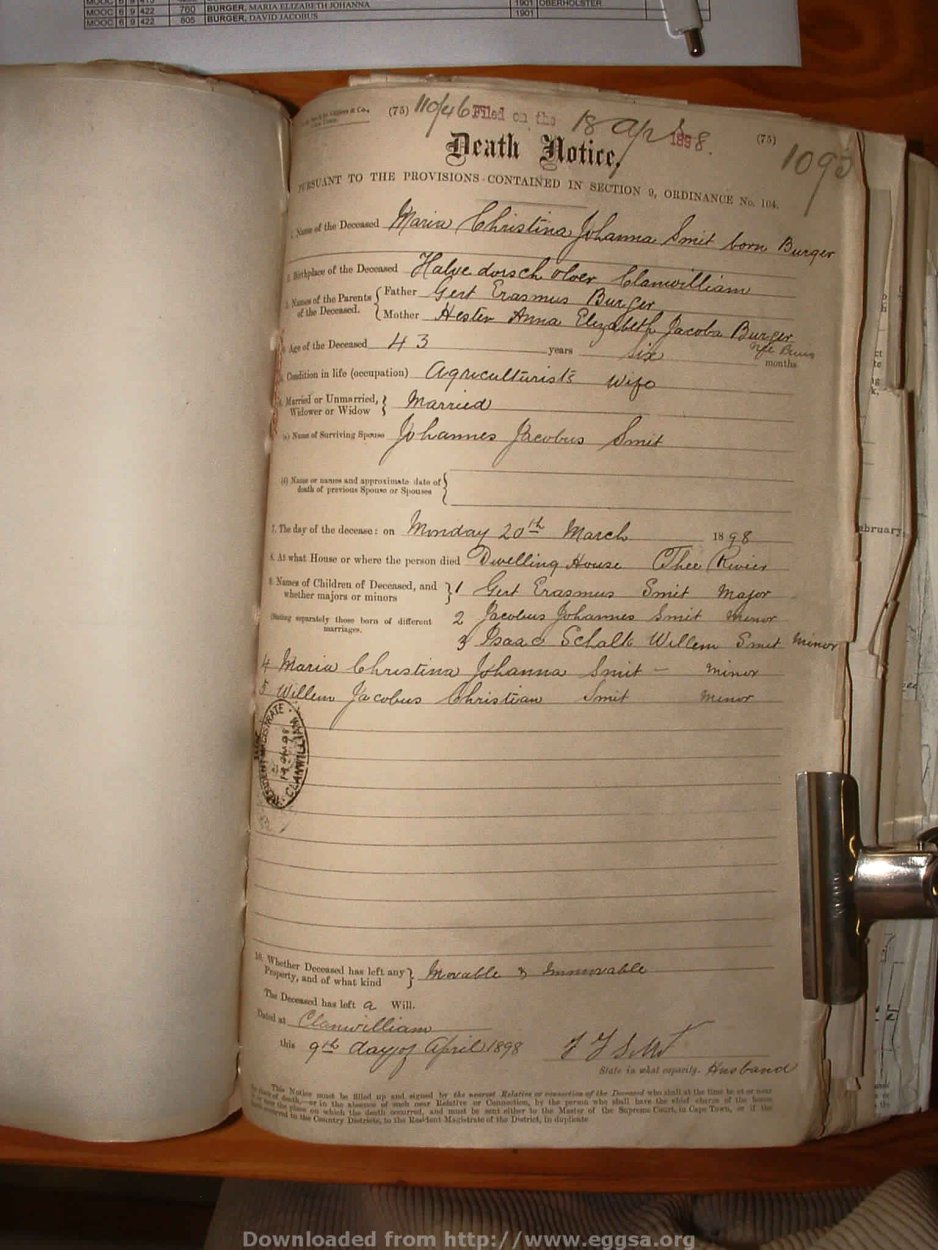 MOOC 6 9 415
MOOC 6 9 422 760 BURGER, MARIA ELIZABETH JOHANNA 1901 OBERHOLSTER
MOOC 6 9 422 805 BURGER, DAVID JACOBUS 1901
(75) 110/46 Filed on the 18 Apl 1898. (75)
1092
Death Notice,
PURSUANT TO THE PROVISIONS CONTAINED IN SECTION 9, ORDINANCE No. 104.
1. Name of the Deceased Maria Christina Johanna Smit born Burger
2. Birthplace of the Deceased Halve dorsch vloer Clanwilliam
3. Names of the Parents of the Deceased. { Father Gert Erasmus Burger
Mother Hester Anna Elizabeth Jacoba Burger
4. Age of the Deceased 43 years six months
5. Condition in life (occupation) Agriculturist's Wife
6. Married or Unmarried, Widower or Widow } Married
(a) Name of Surviving Spouse Johannes Jacobus Smit
(b) Name or names and approximate date of death of previous Spouse or Spouses }
7. The day of the decease: on Monday 20th March 1898
8. At what House or where the person died Dwelling House Thee Rivier
9. Names of Children of Deceased, and whether majors or minors } 1 Gert Erasmus Smit Major
(Stating separately those born of different marriages. 2 Jacobus Johannes Smit minor
3 Isaac Schalk Willem Smit minor
4 Maria Christina Johanna Smit – minor
5 Willem Jacobus Christian Smit minor
RESIDENT MAGISTRATE
CLANWILLIAM
10. Whether Deceased has left any Property, and of what kind } Movable & Immovable
The Deceased has left a Will.
Dated at Clanwilliam
this 9th day of April 1898 J J Smit
State in what capacity. Husband
This Notice must be filled up and signed by the nearest Relative or connection of the Deceased who shall at the time be at or near
the place of death,—or in the absence of such near Relative or Connection, by the person who shall have the chief charge of the house
or of the place on which the death occurred, and must be sent either to the Master of the Supreme Court, in Cape Town, or if the
death occurred in the Country Districts, to the Resident Magistrate of the District, in duplicate
ebruary
Downloaded from http://www.eggsa.org